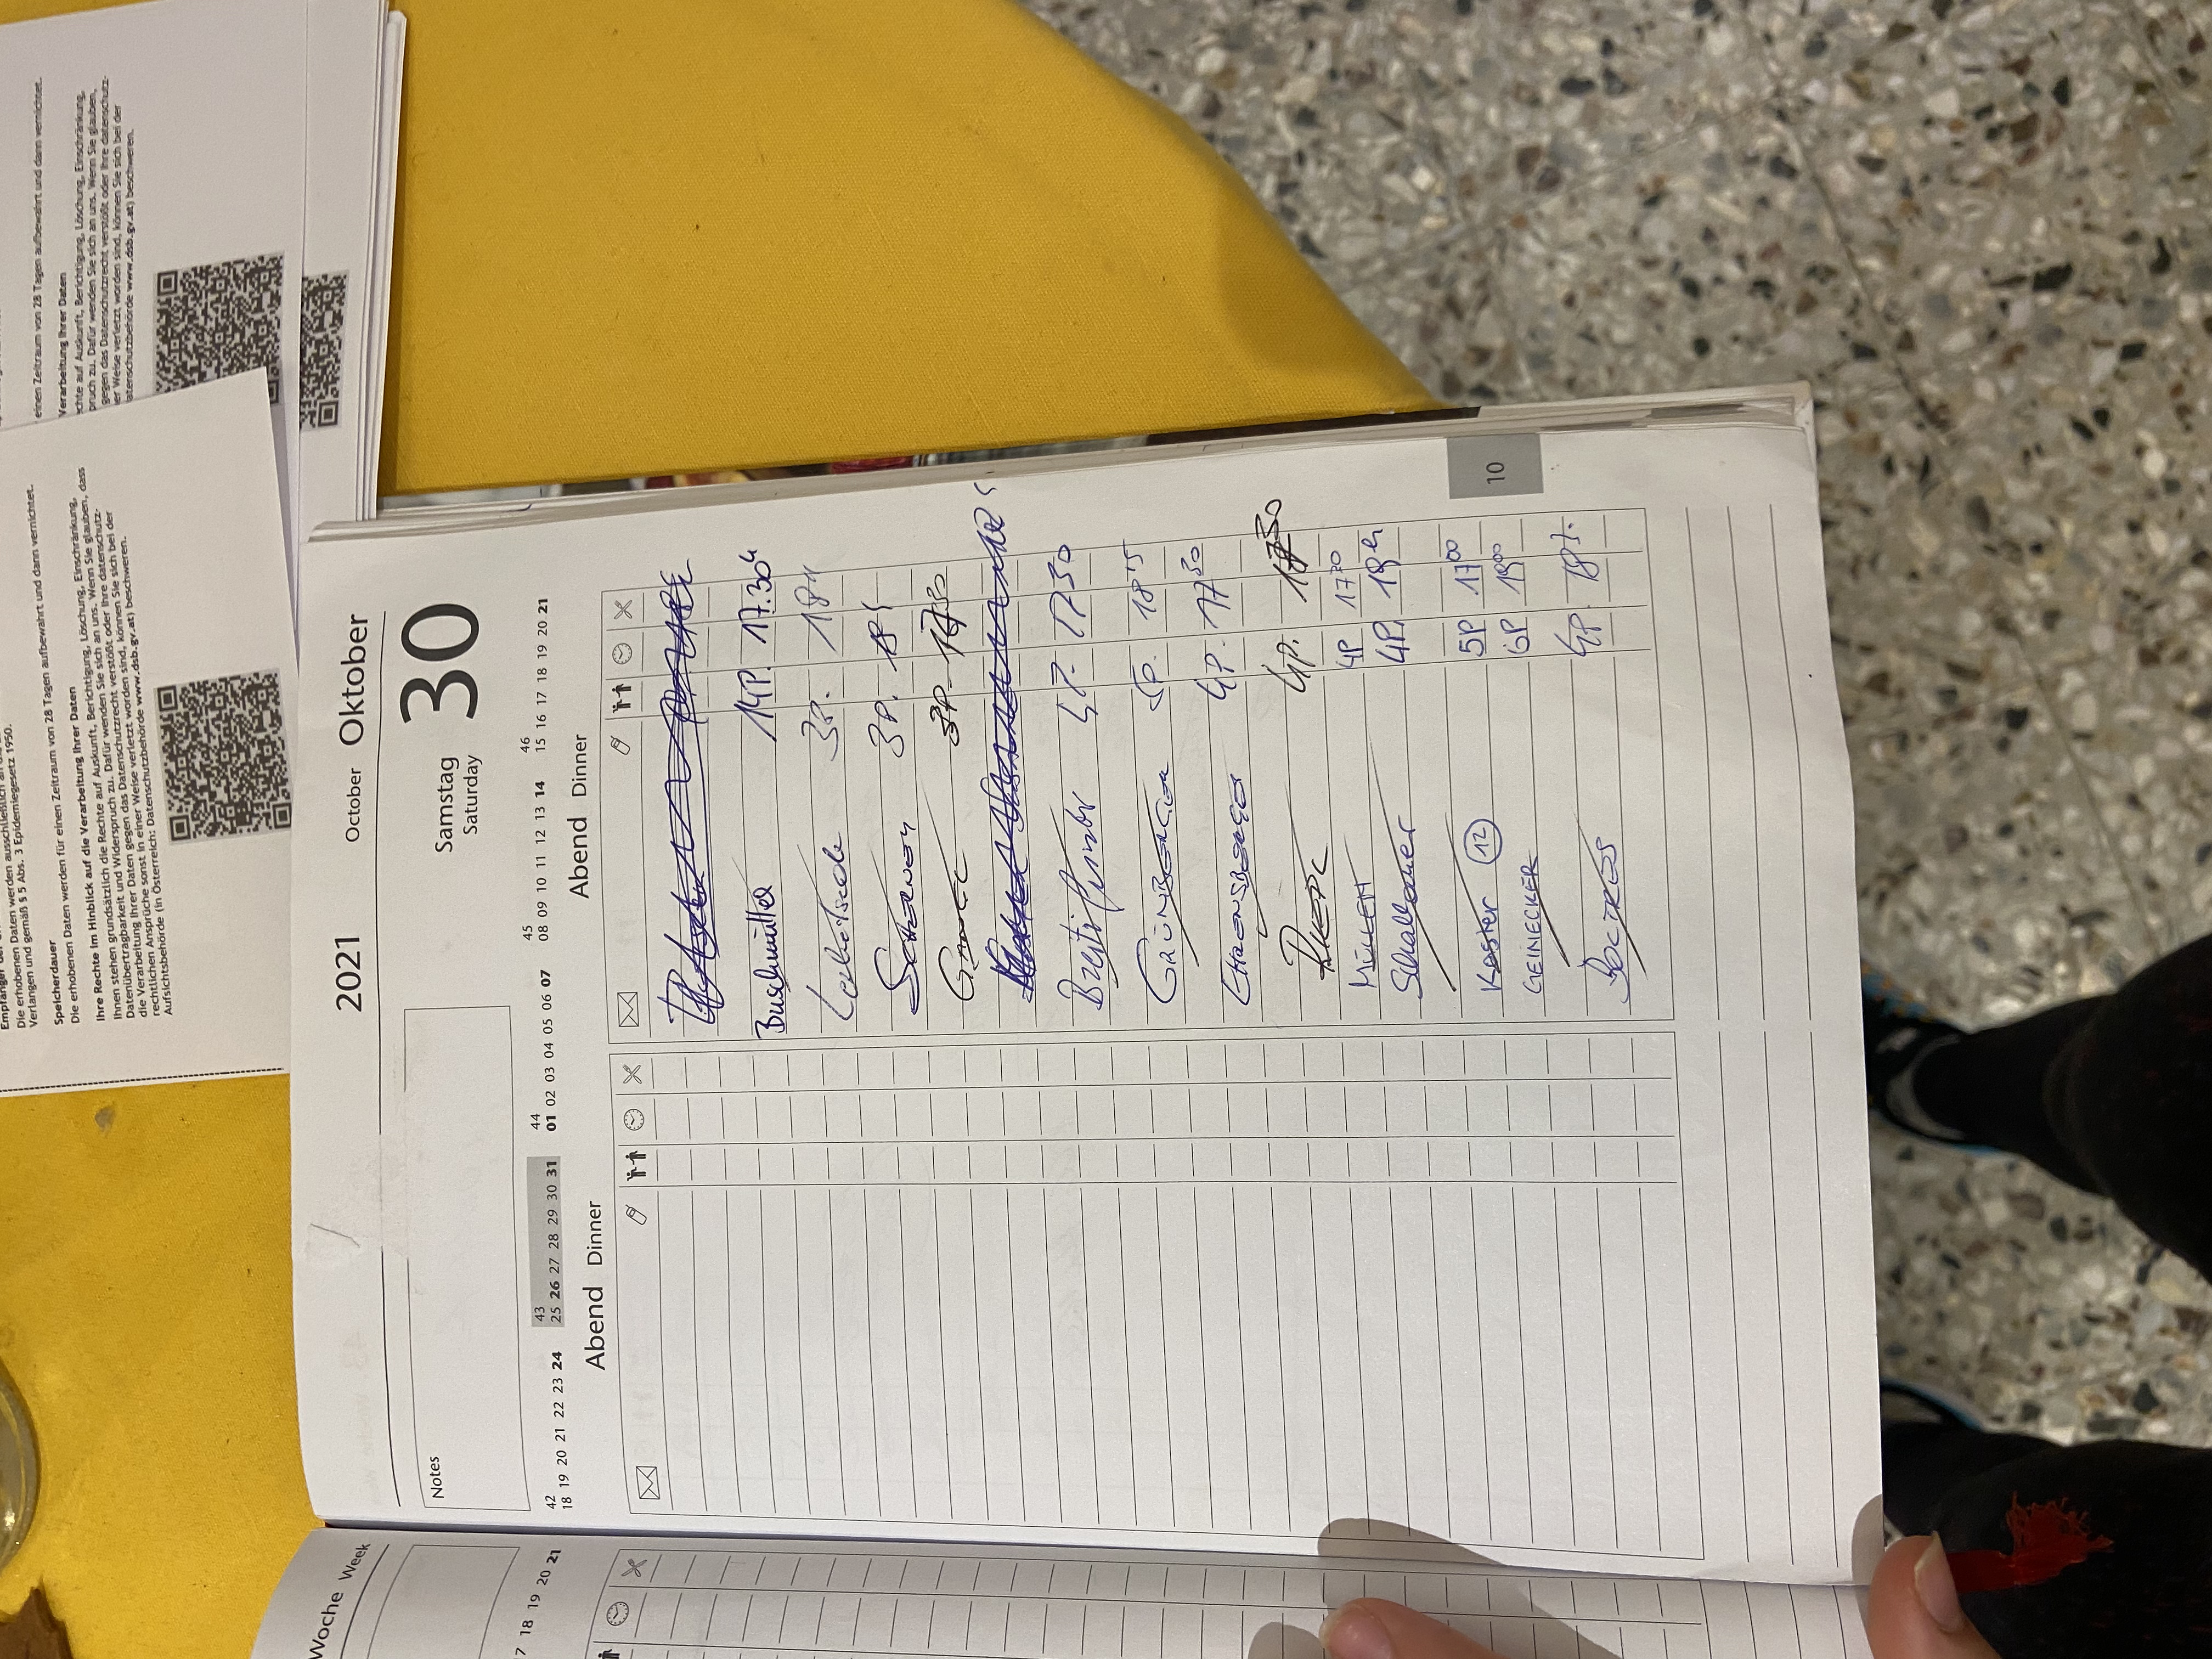 Die erhobenen Daten werden ausschließlich an die
Verlangen und gemäß § 5 Abs. 3 Epidemiegesetz 1950.
Speicherdauer
Die erhobenen Daten werden für einen Zeitraum von 28 Tagen aufbewahrt und dann vernichtet.
Ihre Rechte im Hinblick auf die Verarbeitung Ihrer Daten
Ihnen stehen grundsätzlich die Rechte auf Auskunft, Berichtigung, Löschung, Einschränkung,
Datenübertragbarkeit und Widerspruch zu. Dafür wenden Sie sich an uns. Wenn Sie glauben, dass
die Verarbeitung Ihrer Daten gegen das Datenschutzrecht verstößt oder Ihre datenschutz-
rechtlichen Ansprüche sonst in einer Weise verletzt worden sind, können Sie sich bei der
Aufsichtsbehörde (in Österreich: Datenschutzbehörde www.dsb.gv.at) beschweren.
einen Zeitraum von 28 Tagen aufbewahrt und dann vernichtet.
Verarbeitung Ihrer Daten
echte auf Auskunft, Berichtigung, Löschung, Einschränkung,
pruch zu. Dafür wenden Sie sich an uns. Wenn Sie glauben,
gegen das Datenschutzrecht verstößt oder Ihre datenschutz-
er Weise verletzt worden sind, können Sie sich bei der
atenschutzbehörde www.dsb.gv.at) beschweren.
Woche Week
17 18 19 20 21
2021 October Oktober
Notes
Samstag 30
Saturday
42 43 44 45 46
18 19 20 21 22 23 24 25 26 27 28 29 30 31 01 02 03 04 05 06 07 08 09 10 11 12 13 14 15 16 17 18 19 20 21
Abend Dinner Abend Dinner
Buschmüller 14P. 17.30h
3P. 18h
3P. 18h
3P. 17 30
17 30
GRÜNBERGER 5P. 18 15
EHRENSBERGER 4P. 17 30
4P. 17 30
MÜLLER 4P 17 30
Schallauer 4P. 19h
Koster 12 5P 17 00
GEINECKER 6P 19 00
4P. 18
10